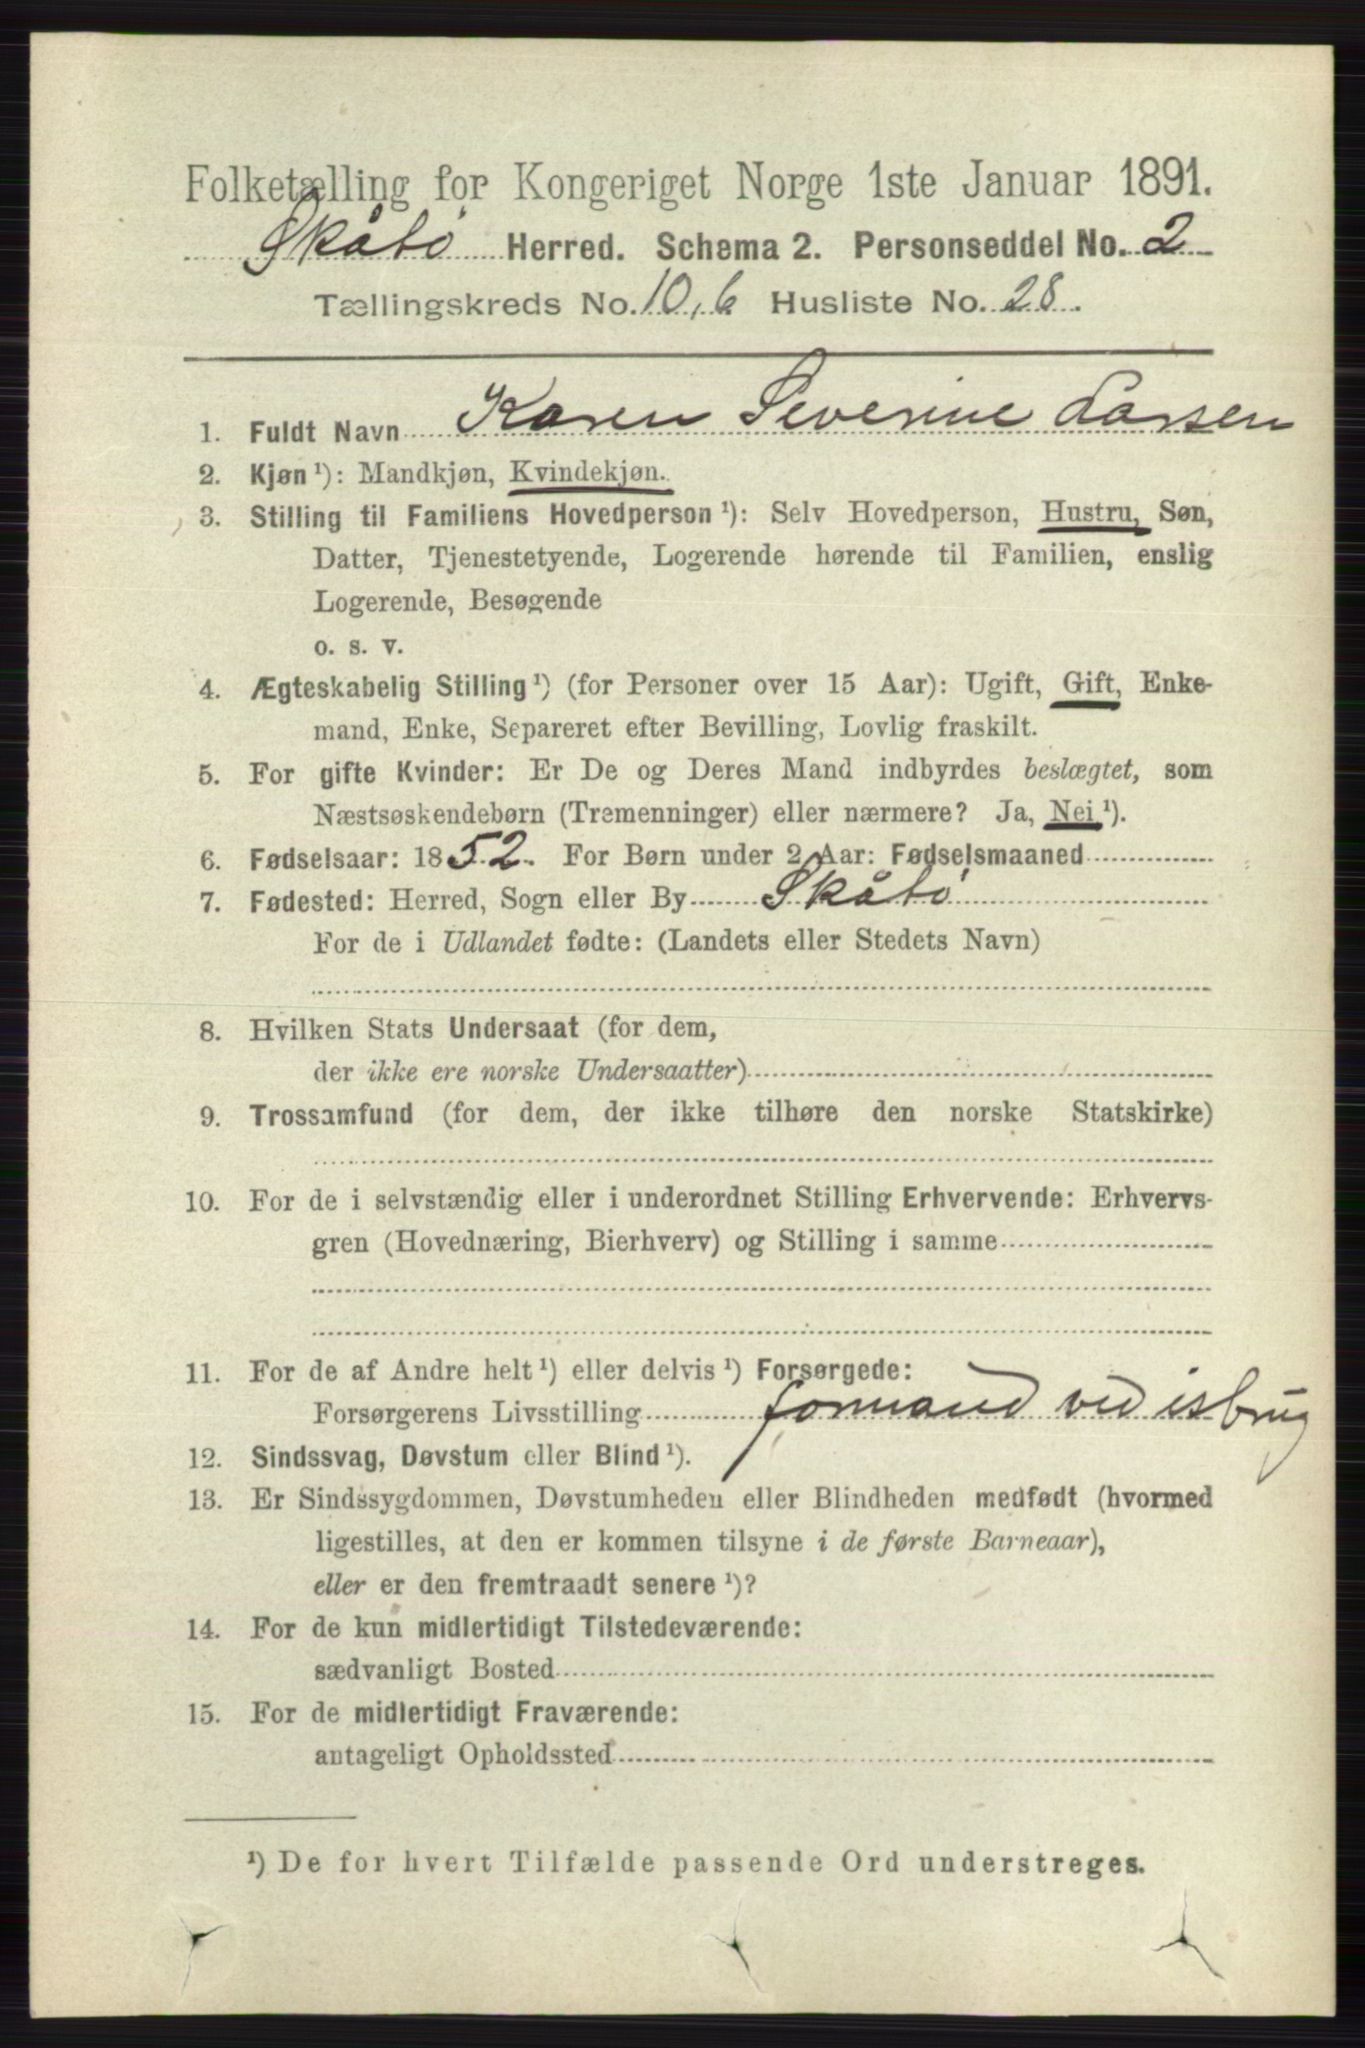 Folketælling for Kongeriget Norge 1ste Januar 1891.
Skåtø Herred. Schema 2. Personseddel No. 2
Tællingskreds No. 10,6 Husliste No. 28.
1. Fuldt Navn Karen Severine Larsen
2. Kjøn ¹): Mandkjøn, Kvindekjøn.
3. Stilling til Familiens Hovedperson ¹): Selv Hovedperson, Hustru, Søn,
Datter, Tjenestetyende, Logerende hørende til Familien, enslig
Logerende, Besøgende
o. s. v.
4. Ægteskabelig Stilling ¹) (for Personer over 15 Aar): Ugift, Gift, Enke-
mand, Enke, Separeret efter Bevilling, Lovlig fraskilt.
5. For gifte Kvinder: Er De og Deres Mand indbyrdes beslægtet, som
Næstsøskendebørn (Tremenninger) eller nærmere? Ja, Nei ¹).
6. Fødselsaar: 1852. For Børn under 2 Aar: Fødselsmaaned
7. Fødested: Herred, Sogn eller By Skåtø
For de i Udlandet fødte: (Landets eller Stedets Navn)
8. Hvilken Stats Undersaat (for dem,
der ikke ere norske Undersaatter)
9. Trossamfund (for dem, der ikke tilhøre den norske Statskirke)
10. For de i selvstændig eller i underordnet Stilling Erhvervende: Erhvervs-
gren (Hovednæring, Bierhverv) og Stilling i samme
11. For de af Andre helt ¹) eller delvis ¹) Forsørgede:
Forsørgerens Livsstilling formand ved isbrug
12. Sindssvag, Døvstum eller Blind ¹).
13. Er Sindssygdommen, Døvstumheden eller Blindheden medfødt (hvormed
ligestilles, at den er kommen tilsyne i de første Barneaar),
eller er den fremtraadt senere ¹)?
14. For de kun midlertidigt Tilstedeværende:
sædvanligt Bosted
15. For de midlertidigt Fraværende:
antageligt Opholdssted
¹) De for hvert Tilfælde passende Ord understreges.